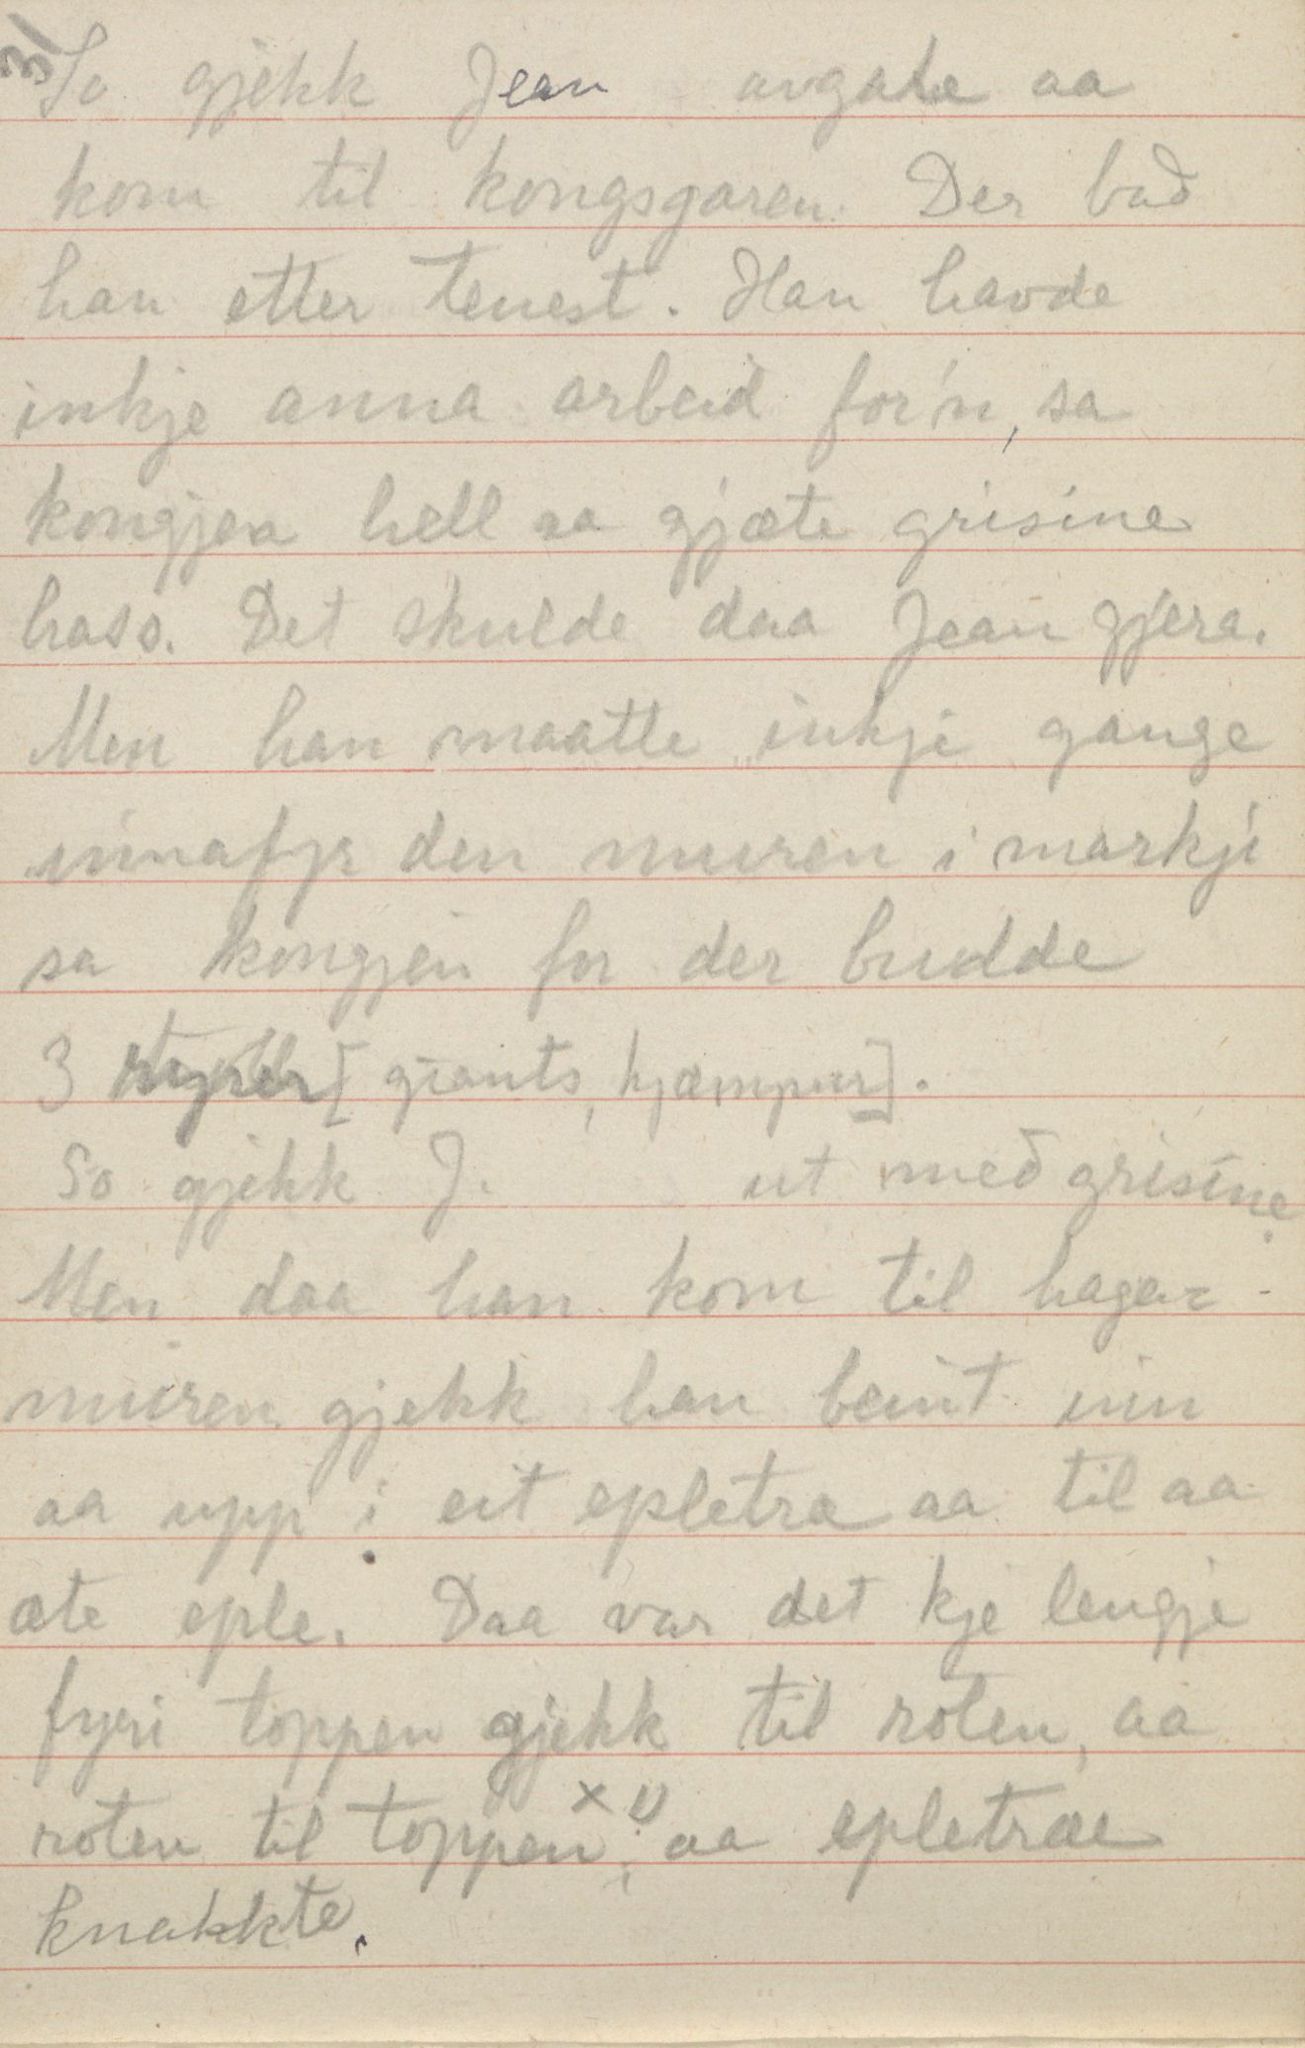 3/
So gjekk Jean avgale aa
kom til kongsgaren. Der bað
han etter tenest. Han havde
inkje anna arbeid for'n, sa
kongjen hell aa gjæte grisine
hass. Det skulde daa Jean gjera.
Men han maatte inkji gange
innafyr den muren i markji
sa kongjen for der budde
3 [giants, kjæmpur].
So gjekk J. ut með grisine.
Men daa han kom til hagar-
muren gjekk han beint inn
aa upp i eit epletræ aa til aa
æte eple. Daa var det kje lengje
fyri toppen gjekk til roten, aa
roten til toppen x 1), aa epletræe
knakkte.